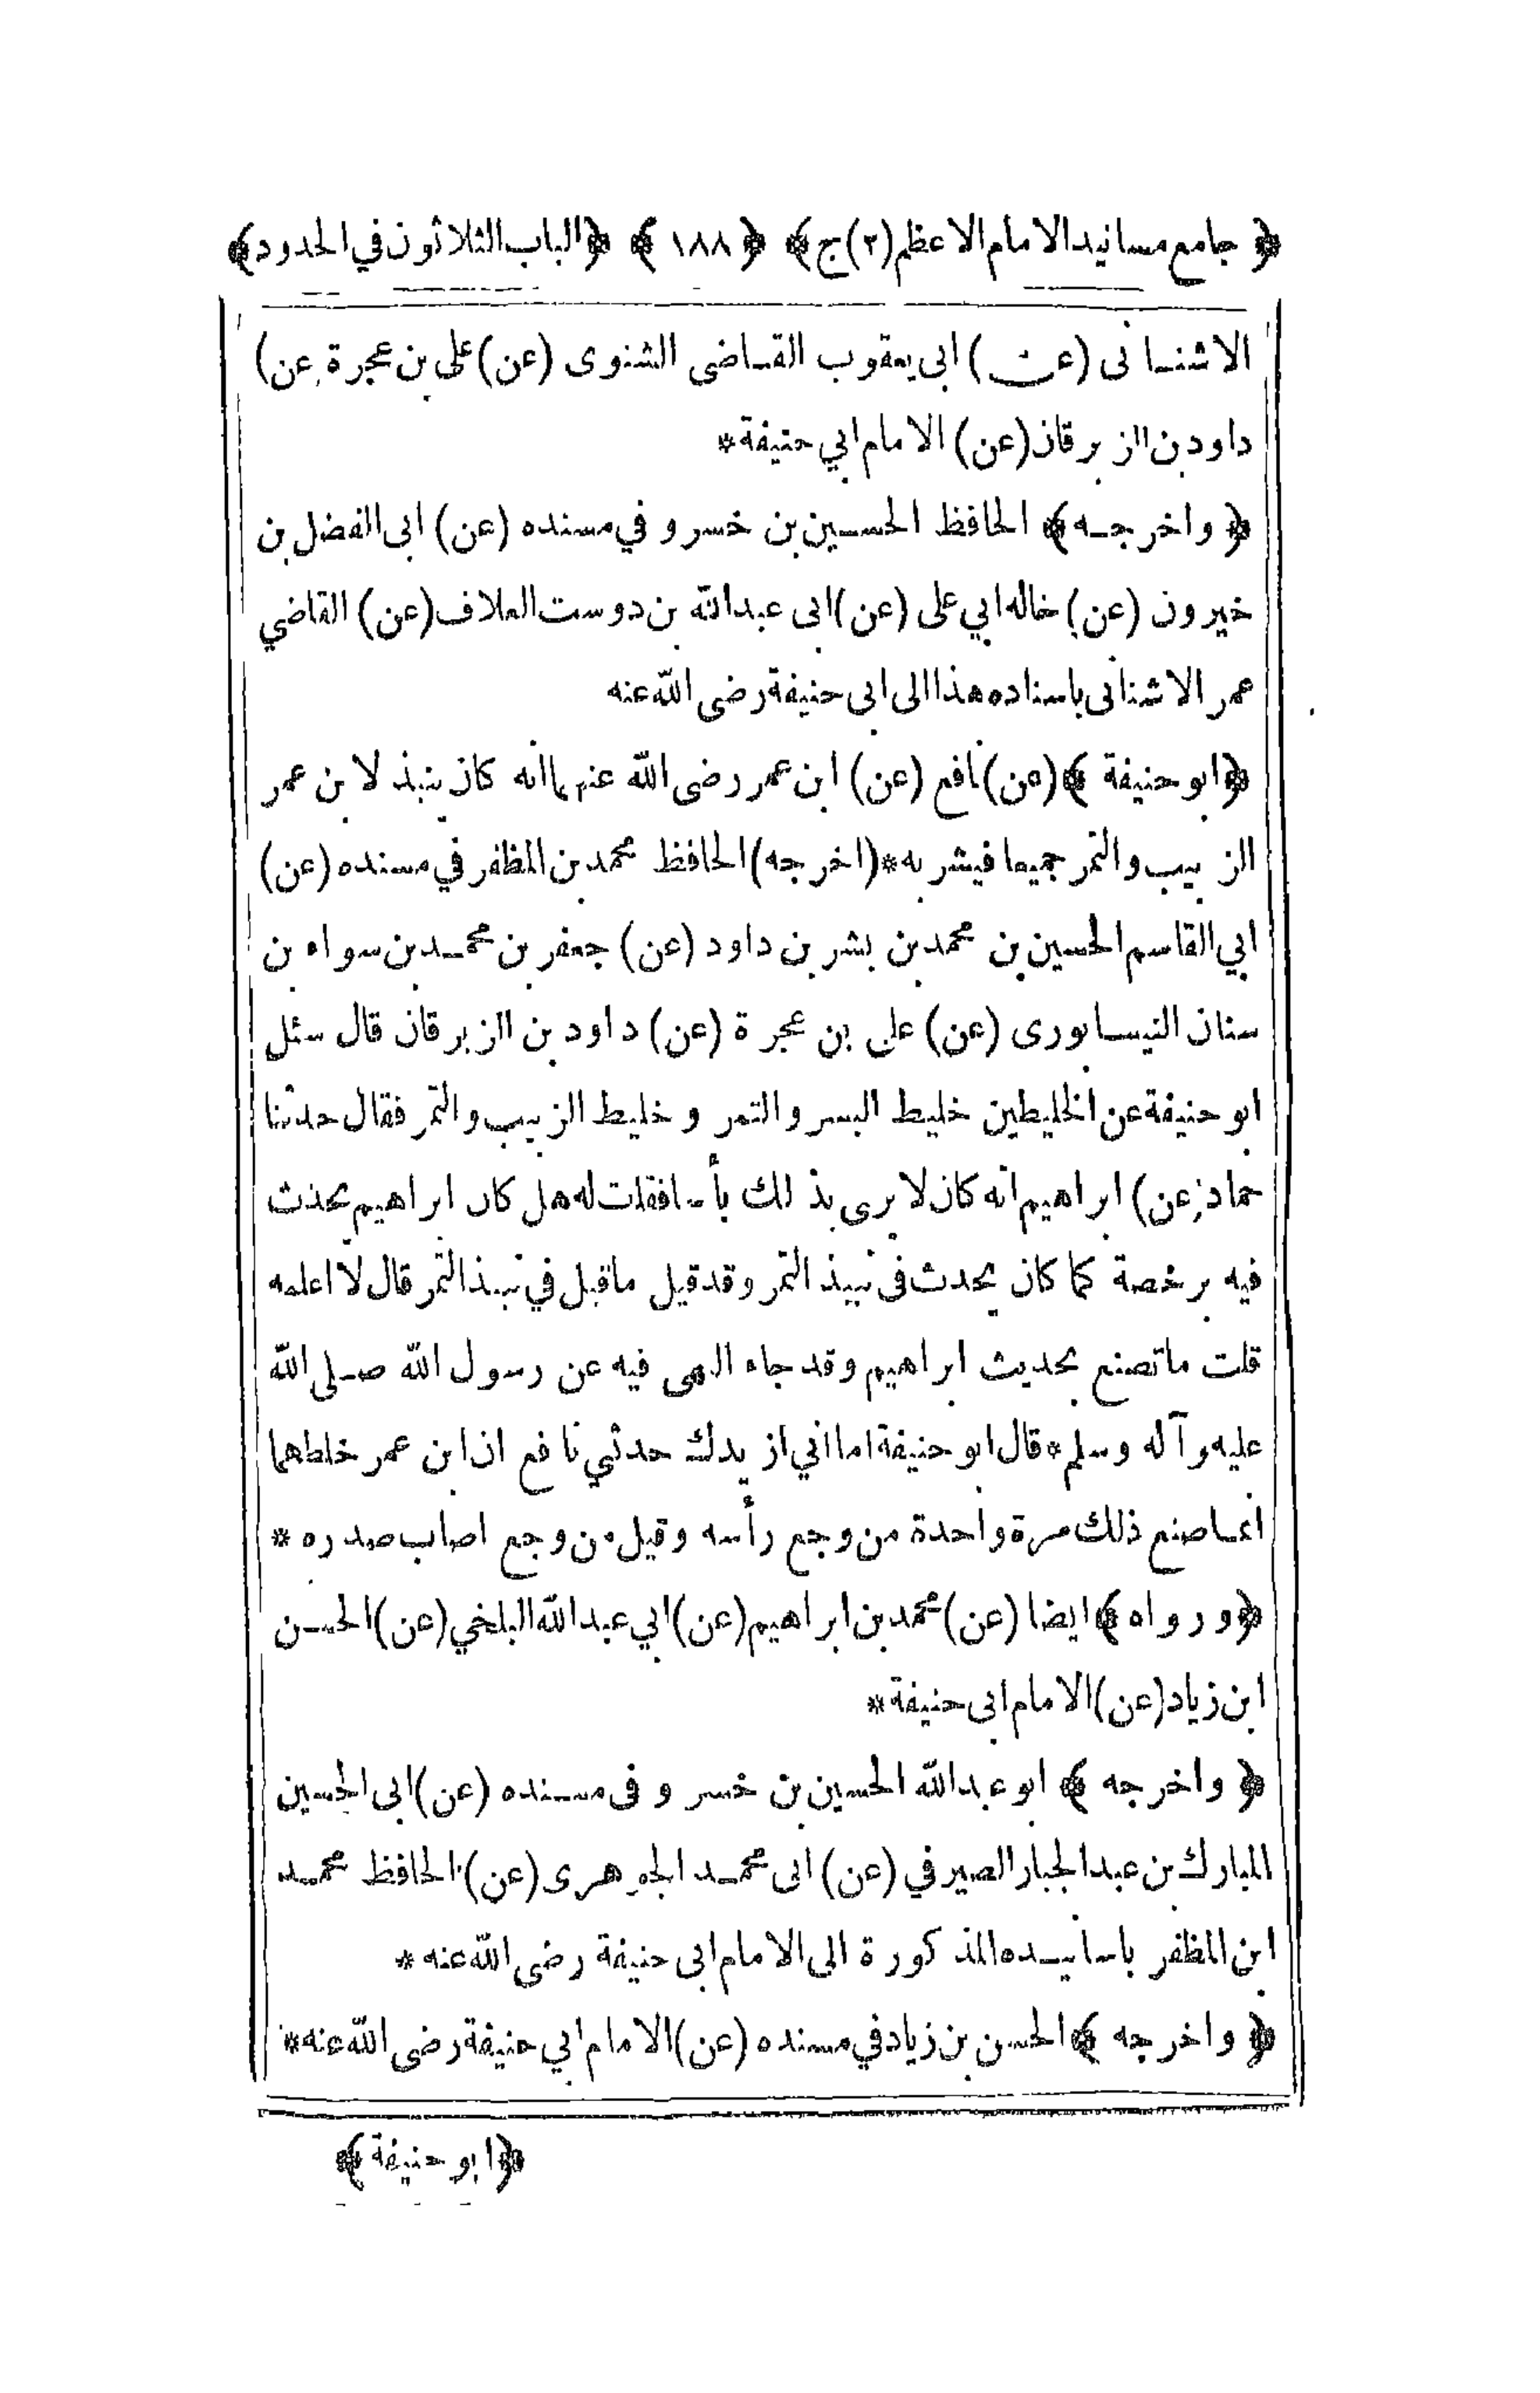 ﴿ جامع مسانيد الامام الاعظم (٢) ج ﴾ ﴿ ١٨٨ ﴾ ﴿ الباب الثلاثون في الحدود ﴾
الاشنانى (عن) ابى يعقوب القاضى الشنوى (عن) على بن عجرة (عن)
داود بن الزبرقان (عن) الامام ابي حنيفة *
﴿ واخرجه ﴾ الحافظ الحسين بن خسرو في مسنده (عن) ابى الفضل بن
خيرون (عن) خاله ابي على (عن) ابى عبدالله بن دوست العلاف (عن) القاضي
عمر الاشنانى باسناده هذا الى ابى حنيفة رضى الله عنه
﴿ ابو حنيفة ﴾ (عن) نافع (عن) ابن عمر رضى الله عنهما انه كان ينبذ لابن عمر
الزبيب والتمر جميعا فيشربه * (اخرجه) الحافظ محمد بن المظفر في مسنده (عن)
ابي القاسم الحسين بن محمد بن بشر بن داود (عن) جعفر بن محمد بن سواه بن
سنان النيسابورى (عن) على بن عجرة (عن) داود بن الزبرقان قال سئل
ابو حنيفة عن الخليطين خليط البسر والتمر و خليط الزبيب والتمر فقال حدثنا
حماد (عن) ابراهيم انه كان لا يرى بذلك بأسا فقلت له هل كان ابراهيم يحدث
فيه برخصة كما كان يحدث فى نبيذ التمر وقد قيل ماقبل في نبيذ التمر قال لا اعلمه
قلت ما تصنع بحديث ابراهيم وقد جاء النهى فيه عن رسول الله صلى الله
عليه وآله وسلم * قال ابو حنيفة اما اني ازيدك حدثني نافع ان ابن عمر خلطهما
انما صنع ذلك مرة واحدة من وجع رأسه وقيل من وجع اصاب صدره *
﴿ ورواه ﴾ ايضا (عن) محمد بن ابراهيم (عن) ابي عبد الله البلخي (عن) الحسن
ابن زياد (عن) الامام ابى حنيفة *
﴿ واخرجه ﴾ ابو عبد الله الحسين بن خسرو فى مسنده (عن) ابى الحسين
المبارك بن عبد الجبار الصيرفي (عن) ابى محمد الجوهرى (عن) الحافظ محمد
ابن المظفر باسانيده المذكورة الى الامام ابى حنيفة رضى الله عنه *
﴿ واخرجه ﴾ الحسن بن زياد في مسنده (عن) الامام ابي حنيفة رضى الله عنه *
﴿ ابو حنيفة ﴾